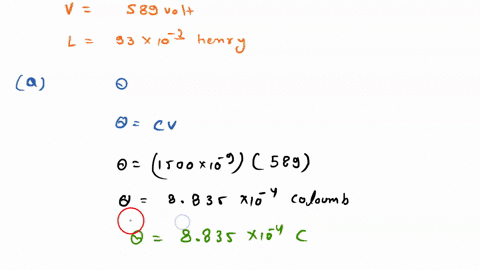 V = 589 volt
L = 93 × 10⁻³ henry
(a) Q
Q = CV
Q = (1500×10⁻⁹) (589)
Q = 8.835 ×10⁻⁴ Coloumb
Q = 8.835 ×10⁻⁴ C